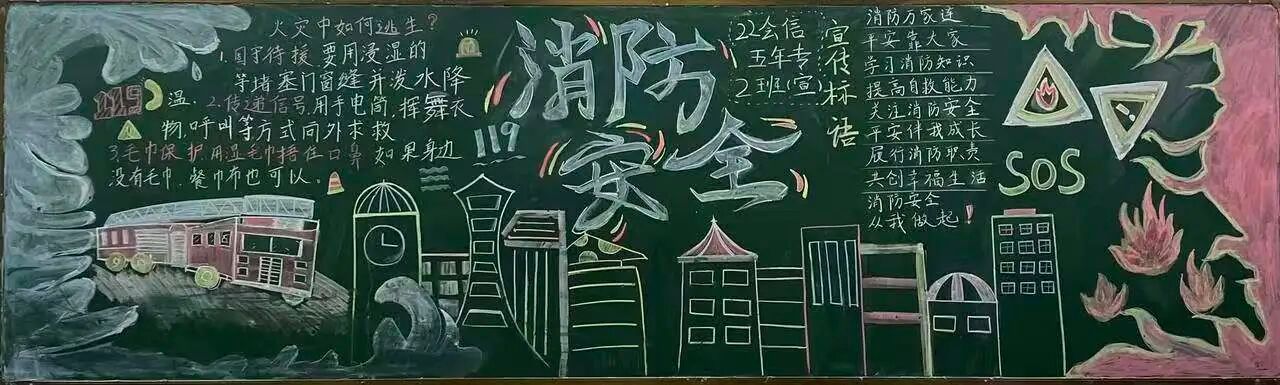 火灾中如何逃生？
1.固手待援 要用浸湿的
等堵塞门窗缝并泼水降
温. 2.传递信号,用手电筒,挥舞衣
物,呼叫等方式向外求救
3.毛巾保护.用湿毛巾捂住口鼻 如果身边
没有毛巾,餐巾布也可以。
119
消防
安全
119
22会信
五年专
2班(宣)
宣传标语
消防万家连
平安靠大家
学习消防知识
提高自救能力
关注消防安全
平安伴我成长
履行消防职责
共创幸福生活
消防安全
从我做起!
SOS